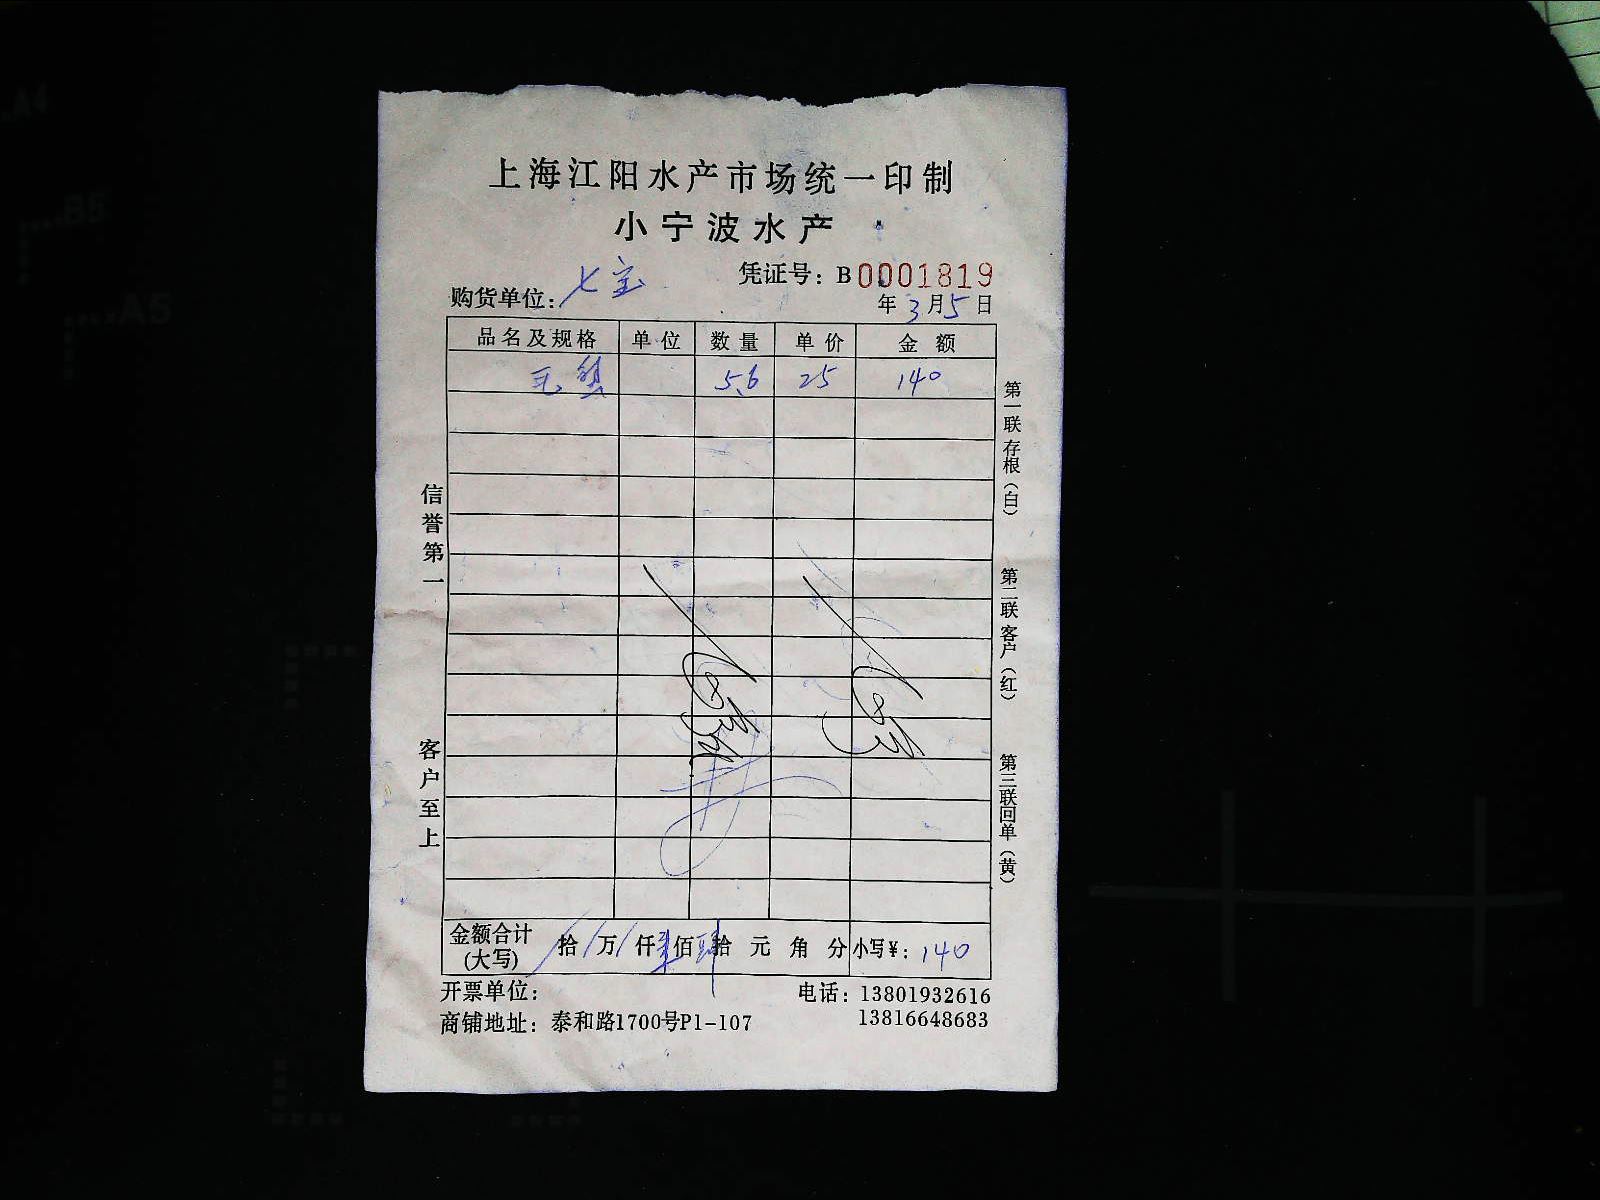 上海江阳水产市场统一印制
小宁波水产
凭证号：B0001819
购货单位：七宝
年3月5日
品名及规格 单位 数量 单价 金额
毛蟹 5.6 25 140
信誉第一
客户至上
第一联 存根（白）
第二联 客户（红）
第三联 回单（黄）
金额合计(大写) 拾 万 仟壹佰肆拾 元 角 分 小写¥：140
开票单位： 电话：13801932616
商铺地址：泰和路1700号P1-107 13816648683
A4
B5
A5